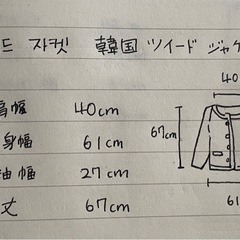 ド 자켓 韓国 ツイード ジャケ
肩幅 40cm
身幅 61cm
袖幅 27cm
丈 67cm
40
67cm
61